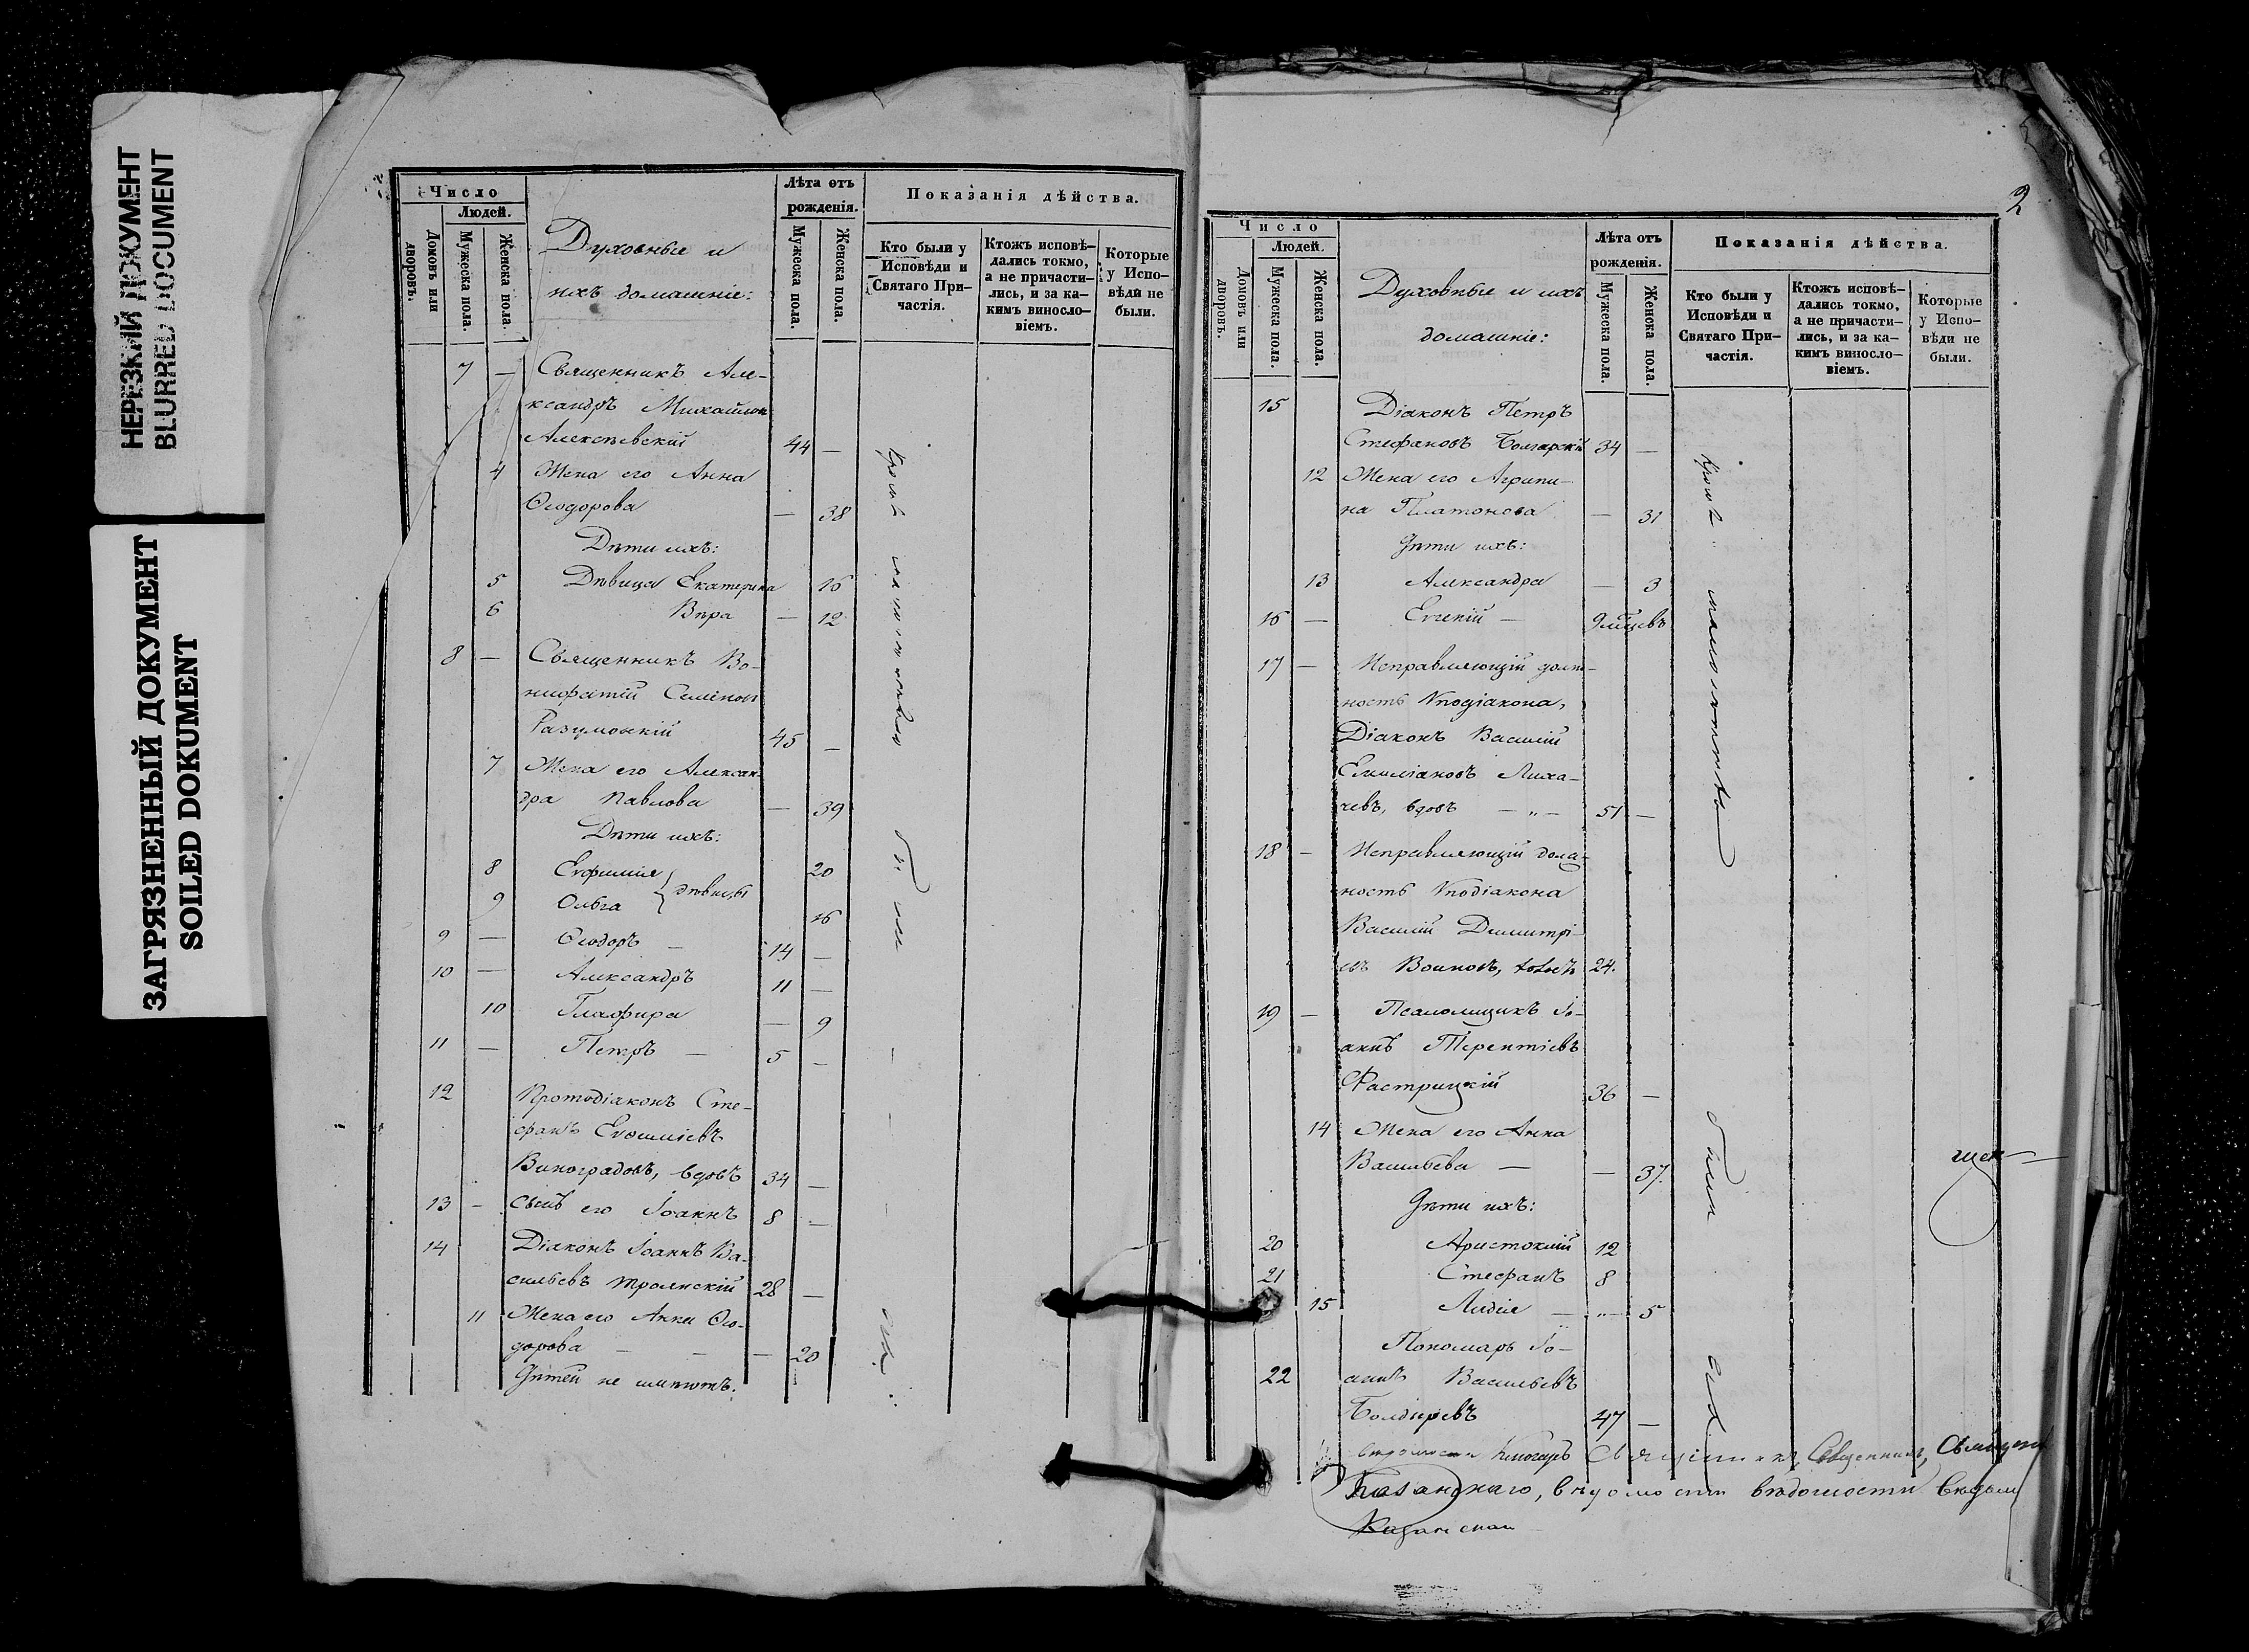 НЕРЕЗКИЙ ДОКУМЕНТ
BLURRED DOCUMENT
ЗАГРЯЗНЕННЫЙ ДОКУМЕНТ
SOILED DOKUMENT
Число
Людей.
Домовъ или дворовъ.
Мужеска пола.
Женска пола.
Духовные и
ихъ домашніе:
Лѣта отъ
рожденія.
Мужеска пола.
Женска пола.
Показанія дѣйства.
Кто были у
Исповѣди и
Святаго При-
частія.
Ктожъ исповѣ-
дались токмо,
а не причасти-
лись, и за ка-
кимъ винослo-
віемъ.
Которые
у Испо-
вѣди не
были.
7 — Священникъ Але-
ксандръ Михайлов
Алексѣевскій 44 —
4 Жена его Анна
Ѳеодорова — 38
Дѣти ихъ:
5 Дѣвица Екатерина 16
6 Вѣра — 12
8 — Священникъ Во-
нифатій Семенов
Разумовскій 45 —
7 Жена его Алексан-
дра Павлова — 39
Дѣти ихъ:
8 Евфимия 20
девицы
9 Ольга 16
9 — Ѳеодоръ — 14 —
10 — Александръ 11 —
10 Глафира — 9
11 — Петръ — 5 —
12 Протодіаконъ Сте-
фанъ Евфиміевъ
Виноградовъ, вдовъ 34 —
13 — сынъ его Іоаннъ 8 —
14 Діаконъ Іоаннъ Ва-
сильевъ Троянскій 28 —
11 Жена его Анна Ѳео-
дорова — — — 20
Дѣтей не имѣютъ.
Кромѣ малолѣтнихъ были
2
Число
Людей.
Домовъ или дворовъ.
Мужеска пола.
Женска пола.
Духовные и ихъ
домашніе:
Лѣта отъ
рожденія.
Мужеска пола.
Женска пола.
Показанія дѣйства.
Кто были у
Исповѣди и
Святаго При-
частія.
Ктожъ исповѣ-
дались токмо,
а не причасти-
лись, и за ка-
кимъ винослo-
віемъ.
Которые
у Испо-
вѣди не
были.
15 Діаконъ Петръ
Стефановъ Болгарскій 34 —
12 Жена его Агрипи-
на Платонова — 31
Дѣти ихъ:
13 Александра — 3
16 — Евгеній — 9 мѣсцевъ
17 — Исправляющій долж-
ность Иподіакона,
Діаконъ Василій
Емиліановъ Лиха-
чевъ, вдовъ — „ — 51 —
18 — Исправляющій долж-
ность Иподіакона
Василій Димитрі-
евъ Воиновъ, 24.
19 — Псаломщикъ Іо-
аннъ Терентіевъ
Растрицкій 36 —
14 Жена его Анна
Васильева — — 37.
Дѣти ихъ:
20 Аристоклій 12
21 Стефанъ 8
15 Лидія — „ — 5
Пономарь Іо-
22 аннъ Васильевъ
Болдыревъ 47 —
Кромѣ малолѣтнихъ были
Священникъ, Священникъ, Священ
Казанскаго, вѣдомости вѣдомости вѣдом
Казанская